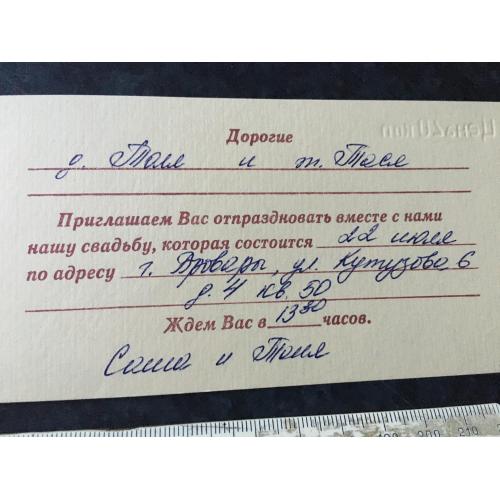 Дорогие
д. Толя и т. Тася
Приглашаем Вас отпраздновать вместе с нами
нашу свадьбу, которая состоится 22 июля
по адресу г. Бровары, ул. Кутузова 6
д. 4 кв. 50
Ждем Вас в 13 30 часов.
Саша и Таня
190 200 210